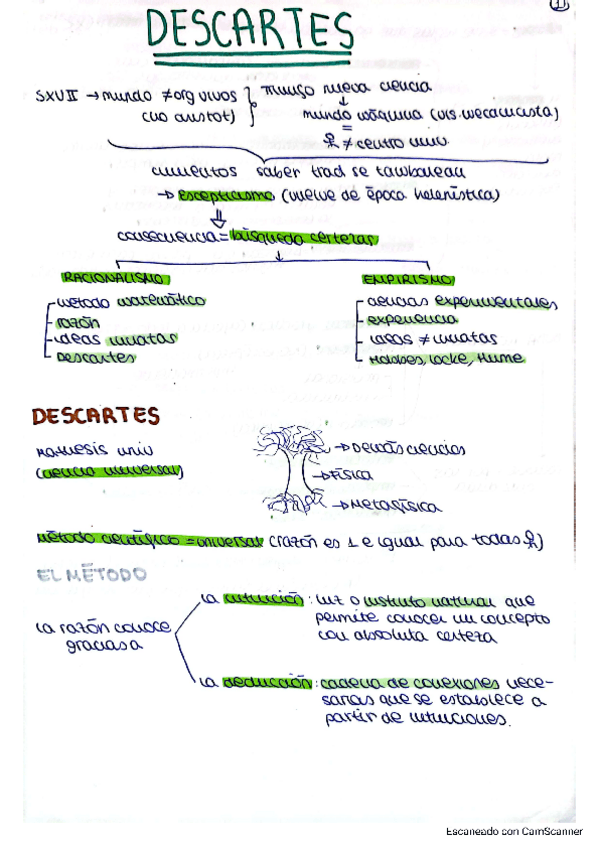 1
DESCARTES
SXVII → mundo ≠ org vivos } triunfo nueva ciencia
(no aristot)
↓
mundo máquina (vis. mecanicista)
≠ centro univ.
cimientos saber trad se tambalean
→ escepticismo (vuelve de época helenística)
consecuencia = búsqueda certezas
RACIONALISMO
- método matemático
- razón
- ideas innatas
- Descartes
EMPIRISMO
- ciencias experimentales
- experiencia
- ideas ≠ innatas
- Hobbes, Locke, Hume
DESCARTES
Mathesis univ
(ciencia universal)
→ Demás ciencias
→ Física
→ Metafísica
Método científico = universal (razón es 1 e igual para todas)
EL MÉTODO
La razón conoce
gracias a
La intuición: luz o instinto natural que
permite conocer un concepto
con absoluta certeza
La deducción: cadena de conexiones nece-
sarias que se establece a
partir de intuiciones.
Escaneado con CamScanner